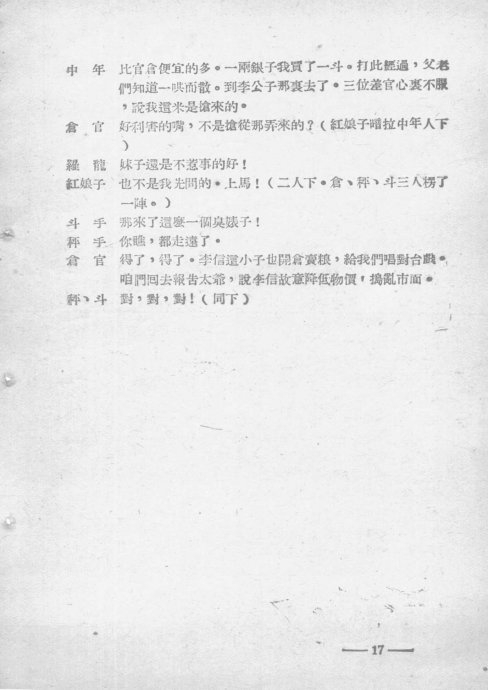 中　年　比官倉便宜的多。一兩銀子我買了一斗。打此經過，父老
們知道一哄而散。到李公子那裏去了。三位差官心裏不服
，說我這米是搶來的。
倉　官　好利害的嘴，不是搶從那弄來的？（紅娘子暗拉中年人下
）
羅　龍　妹子還是不惹事的好！
紅娘子　也不是我先問的。上馬！（二人下。倉、秤、斗三人楞了
一陣。）
斗　手　那來了這麼一個臭婊子！
秤　手　你瞧，都走遠了。
倉　官　得了，得了。李信這小子也開倉賣粮，給我們唱對台戲。
咱們回去報告太爺，說李信故意降低物價，搗亂市面。
秤、斗　對，對，對！（同下）
—— 17 ——